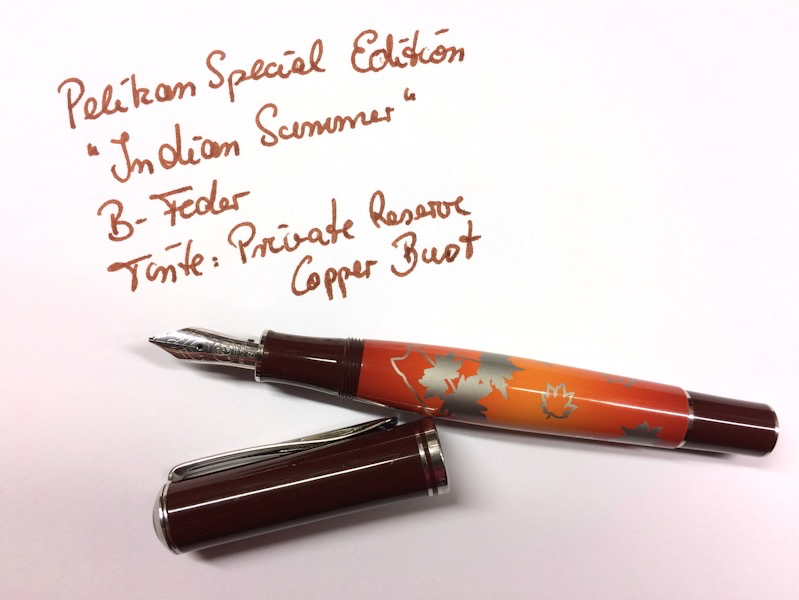 Pelikan Special Edition
"Indian Summer"
B-Feder
Tinte: Private Reserve
Copper Burst